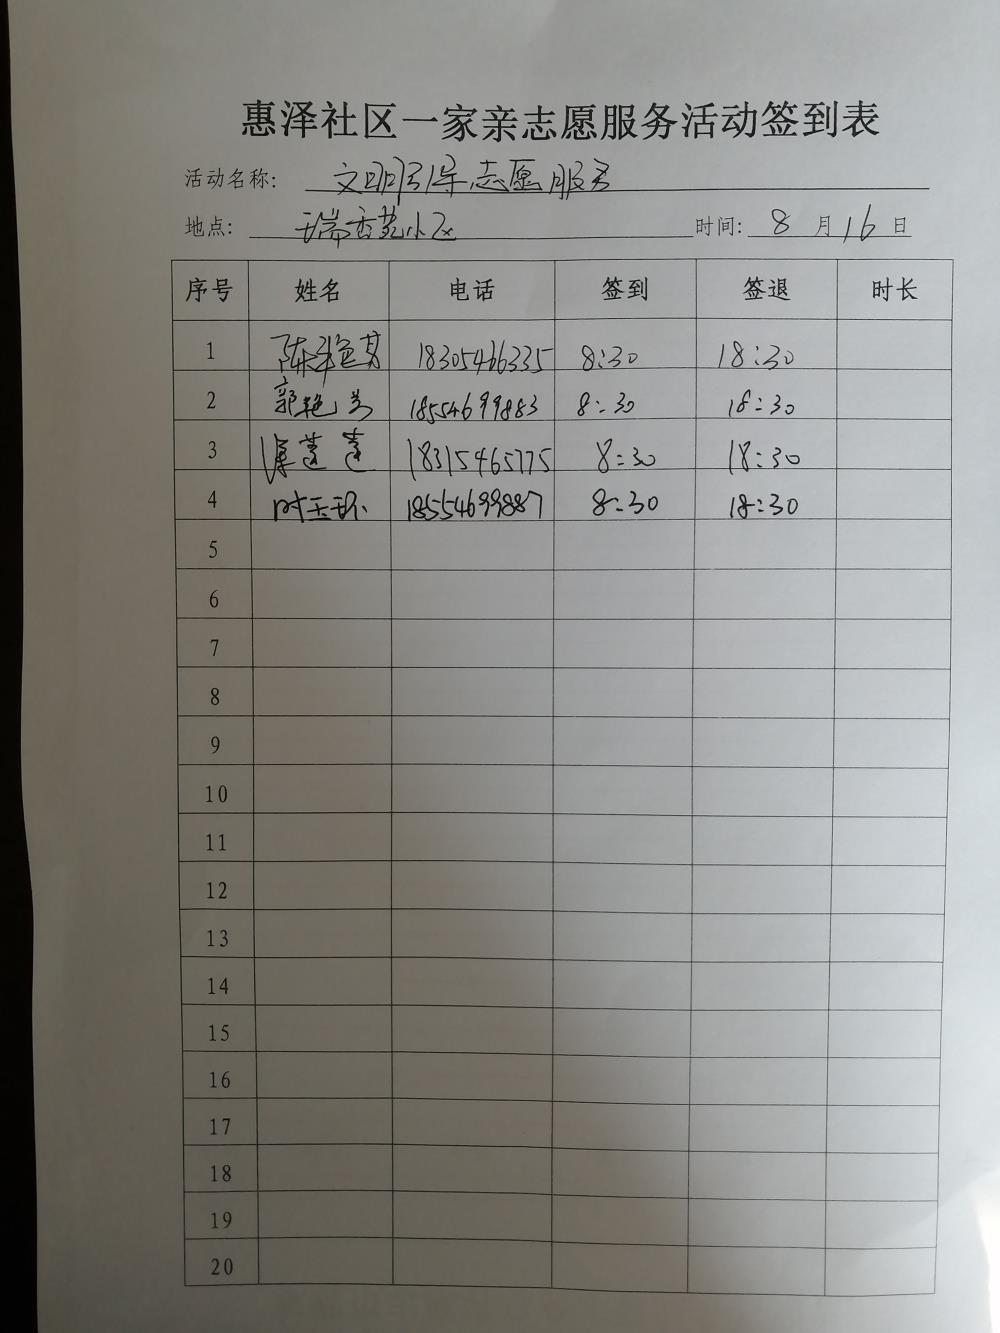 惠泽社区一家亲志愿服务活动签到表
活动名称: 文明引导志愿服务
地点: 瑞香苑小区 时间: 8 月 16 日
序号 姓名 电话 签到 签退 时长
1 陈 18305466335 8:30 18:30
2 郭艳芳 18554699883 8:30 18:30
3 蓬蓬 18315465775 8:30 18:30
4 时玉环 18554699887 8:30 18:30
5
6
7
8
9
10
11
12
13
14
15
16
17
18
19
20